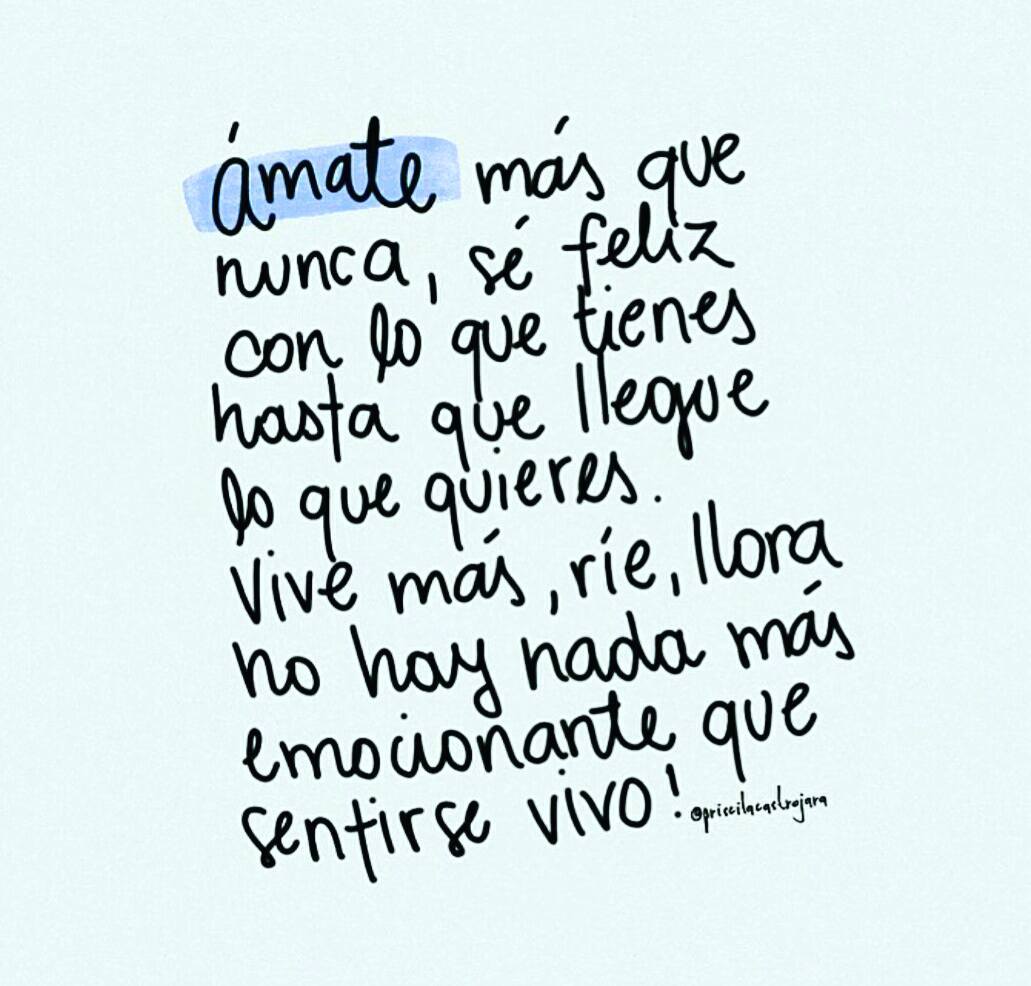 ámate más que
nunca, sé feliz
con lo que tienes
hasta que llegue
lo que quieres.
Vive más, ríe, llora
no hay nada más
emocionante que
sentirse vivo!
@priscilacastrojara